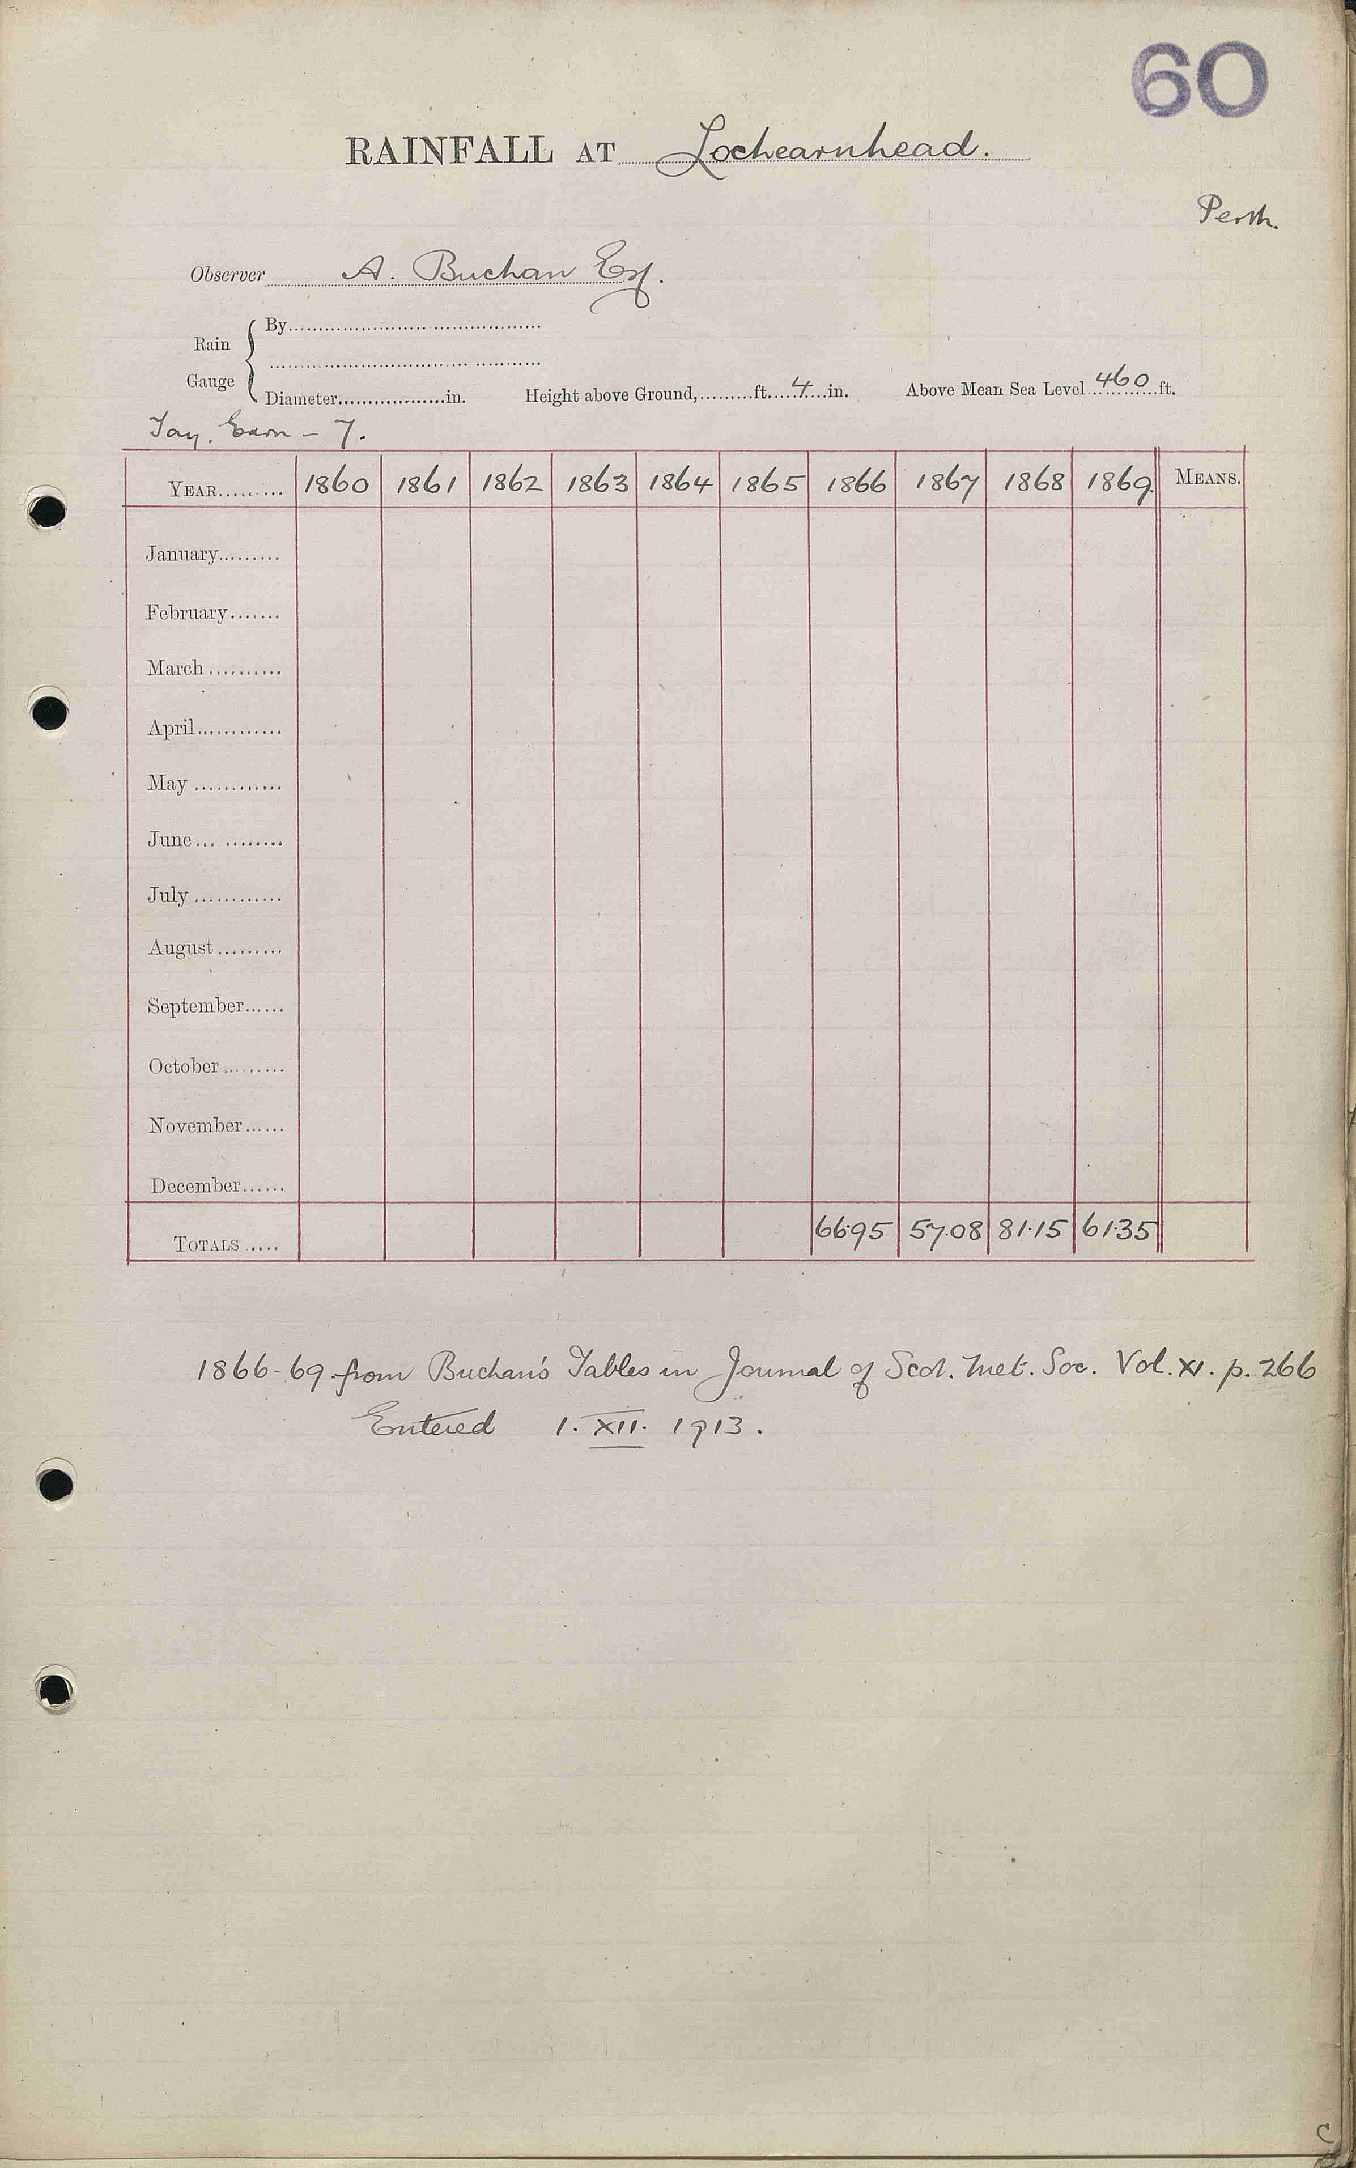 60
RAINFALL AT Lochearnhead.
Perth.
Observer A. Buchan Esq.
Rain Gauge { By
Diameter in. Height above Ground, ft. 4 in. Above Mean Sea Level 460 ft.
Tay. Earn - 7.
YEAR 1860 1861 1862 1863 1864 1865 1866 1867 1868 1869 MEANS.
January
February
March
April
May
June
July
August
September
October
November
December
TOTALS 66.95 57.08 81.15 61.35
1866-69 from Buchan's Tables in Journal of Scot. Met. Soc. Vol. XI. p. 266
Entered 1. XII. 1913.
C